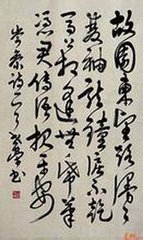 故園東望路漫漫
雙袖龍鍾淚不乾
馬上相逢無紙筆
憑君傳語報平安
岑參詩一首 書